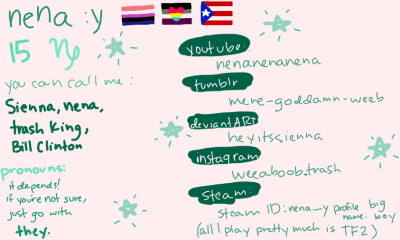 nena :y
15 ♑
you can call me:
Sienna, nena,
trash King,
Bill Clinton
pronouns:
it depends!
if you're not sure,
just go with
they.
youtube:
nenanenanena
tumblr
mere-goddamn-weeb
deviantART
heyitssienna
instagram
weeaboob.trash
steam:
steam ID: nena_y profile name: big boy
(all I play pretty much is TF2)